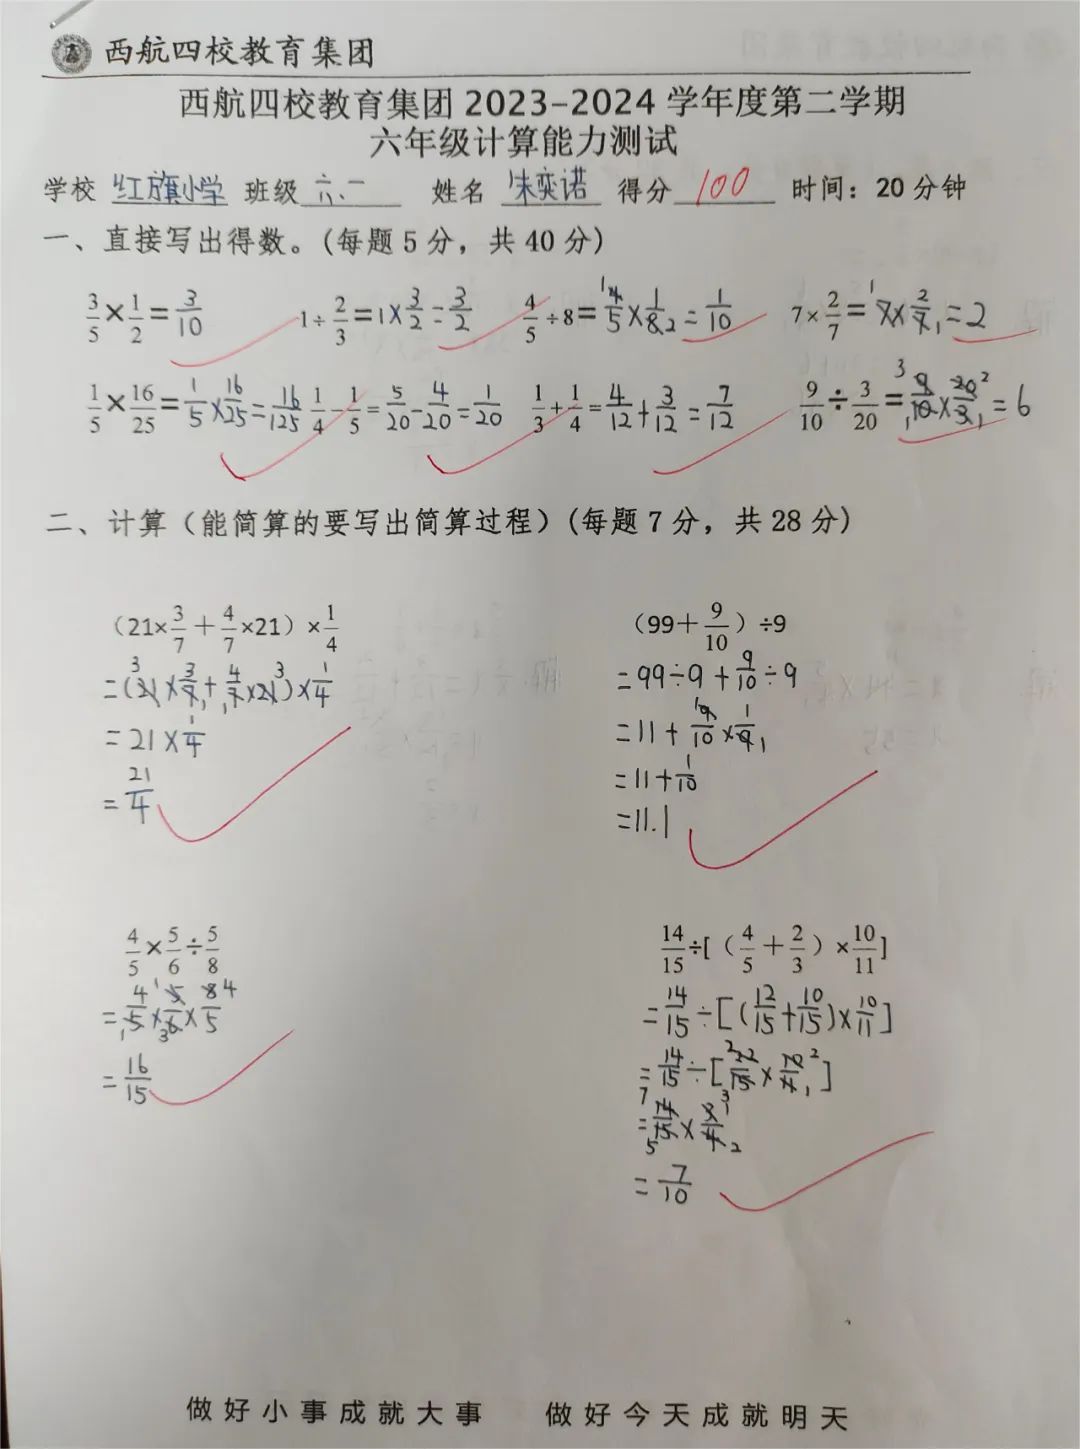 西航四校教育集团
西航四校教育集团 2023-2024 学年度第二学期
六年级计算能力测试
学校 红旗小学 班级 六、一 姓名 朱奕诺 得分 100 时间：20 分钟
一、直接写出得数。(每题 5 分，共 40 分)
3/5 × 1/2 = 3/10 1÷ 2/3 = 1 × 3/2 = 3/2 4/5 ÷8 = 4/5 × 1/8 = 1/10 7× 2/7 = 7 × 2/7 = 2
1/5 × 16/25 = 1/5 × 16/25 = 16/125 1/4 − 1/5 = 5/20 − 4/20 = 1/20 1/3 + 1/4 = 4/12 + 3/12 = 7/12 9/10 ÷ 3/20 = 9/10 × 20/3 = 6
二、计算（能简算的要写出简算过程）(每题 7 分，共 28 分)
（21× 3/7 ＋ 4/7 ×21）× 1/4
= (21 × 3/7 + 4/7 × 21) × 1/4
= 21 × 1/4
= 21/4
（99＋ 9/10 ）÷9
= 99÷9 + 9/10 ÷ 9
= 11 + 9/10 × 1/9
= 11 + 1/10
= 11.1
4/5 × 5/6 ÷ 5/8
= 4/5 × 5/6 × 8/5
= 16/15
14/15 ÷[（ 4/5 ＋ 2/3 ）× 10/11 ]
= 14/15 ÷ [(12/15 + 10/15) × 10/11]
= 14/15 ÷ [22/15 × 10/11]
= 14/15 × 3/4
= 7/10
做好小事成就大事 做好今天成就明天